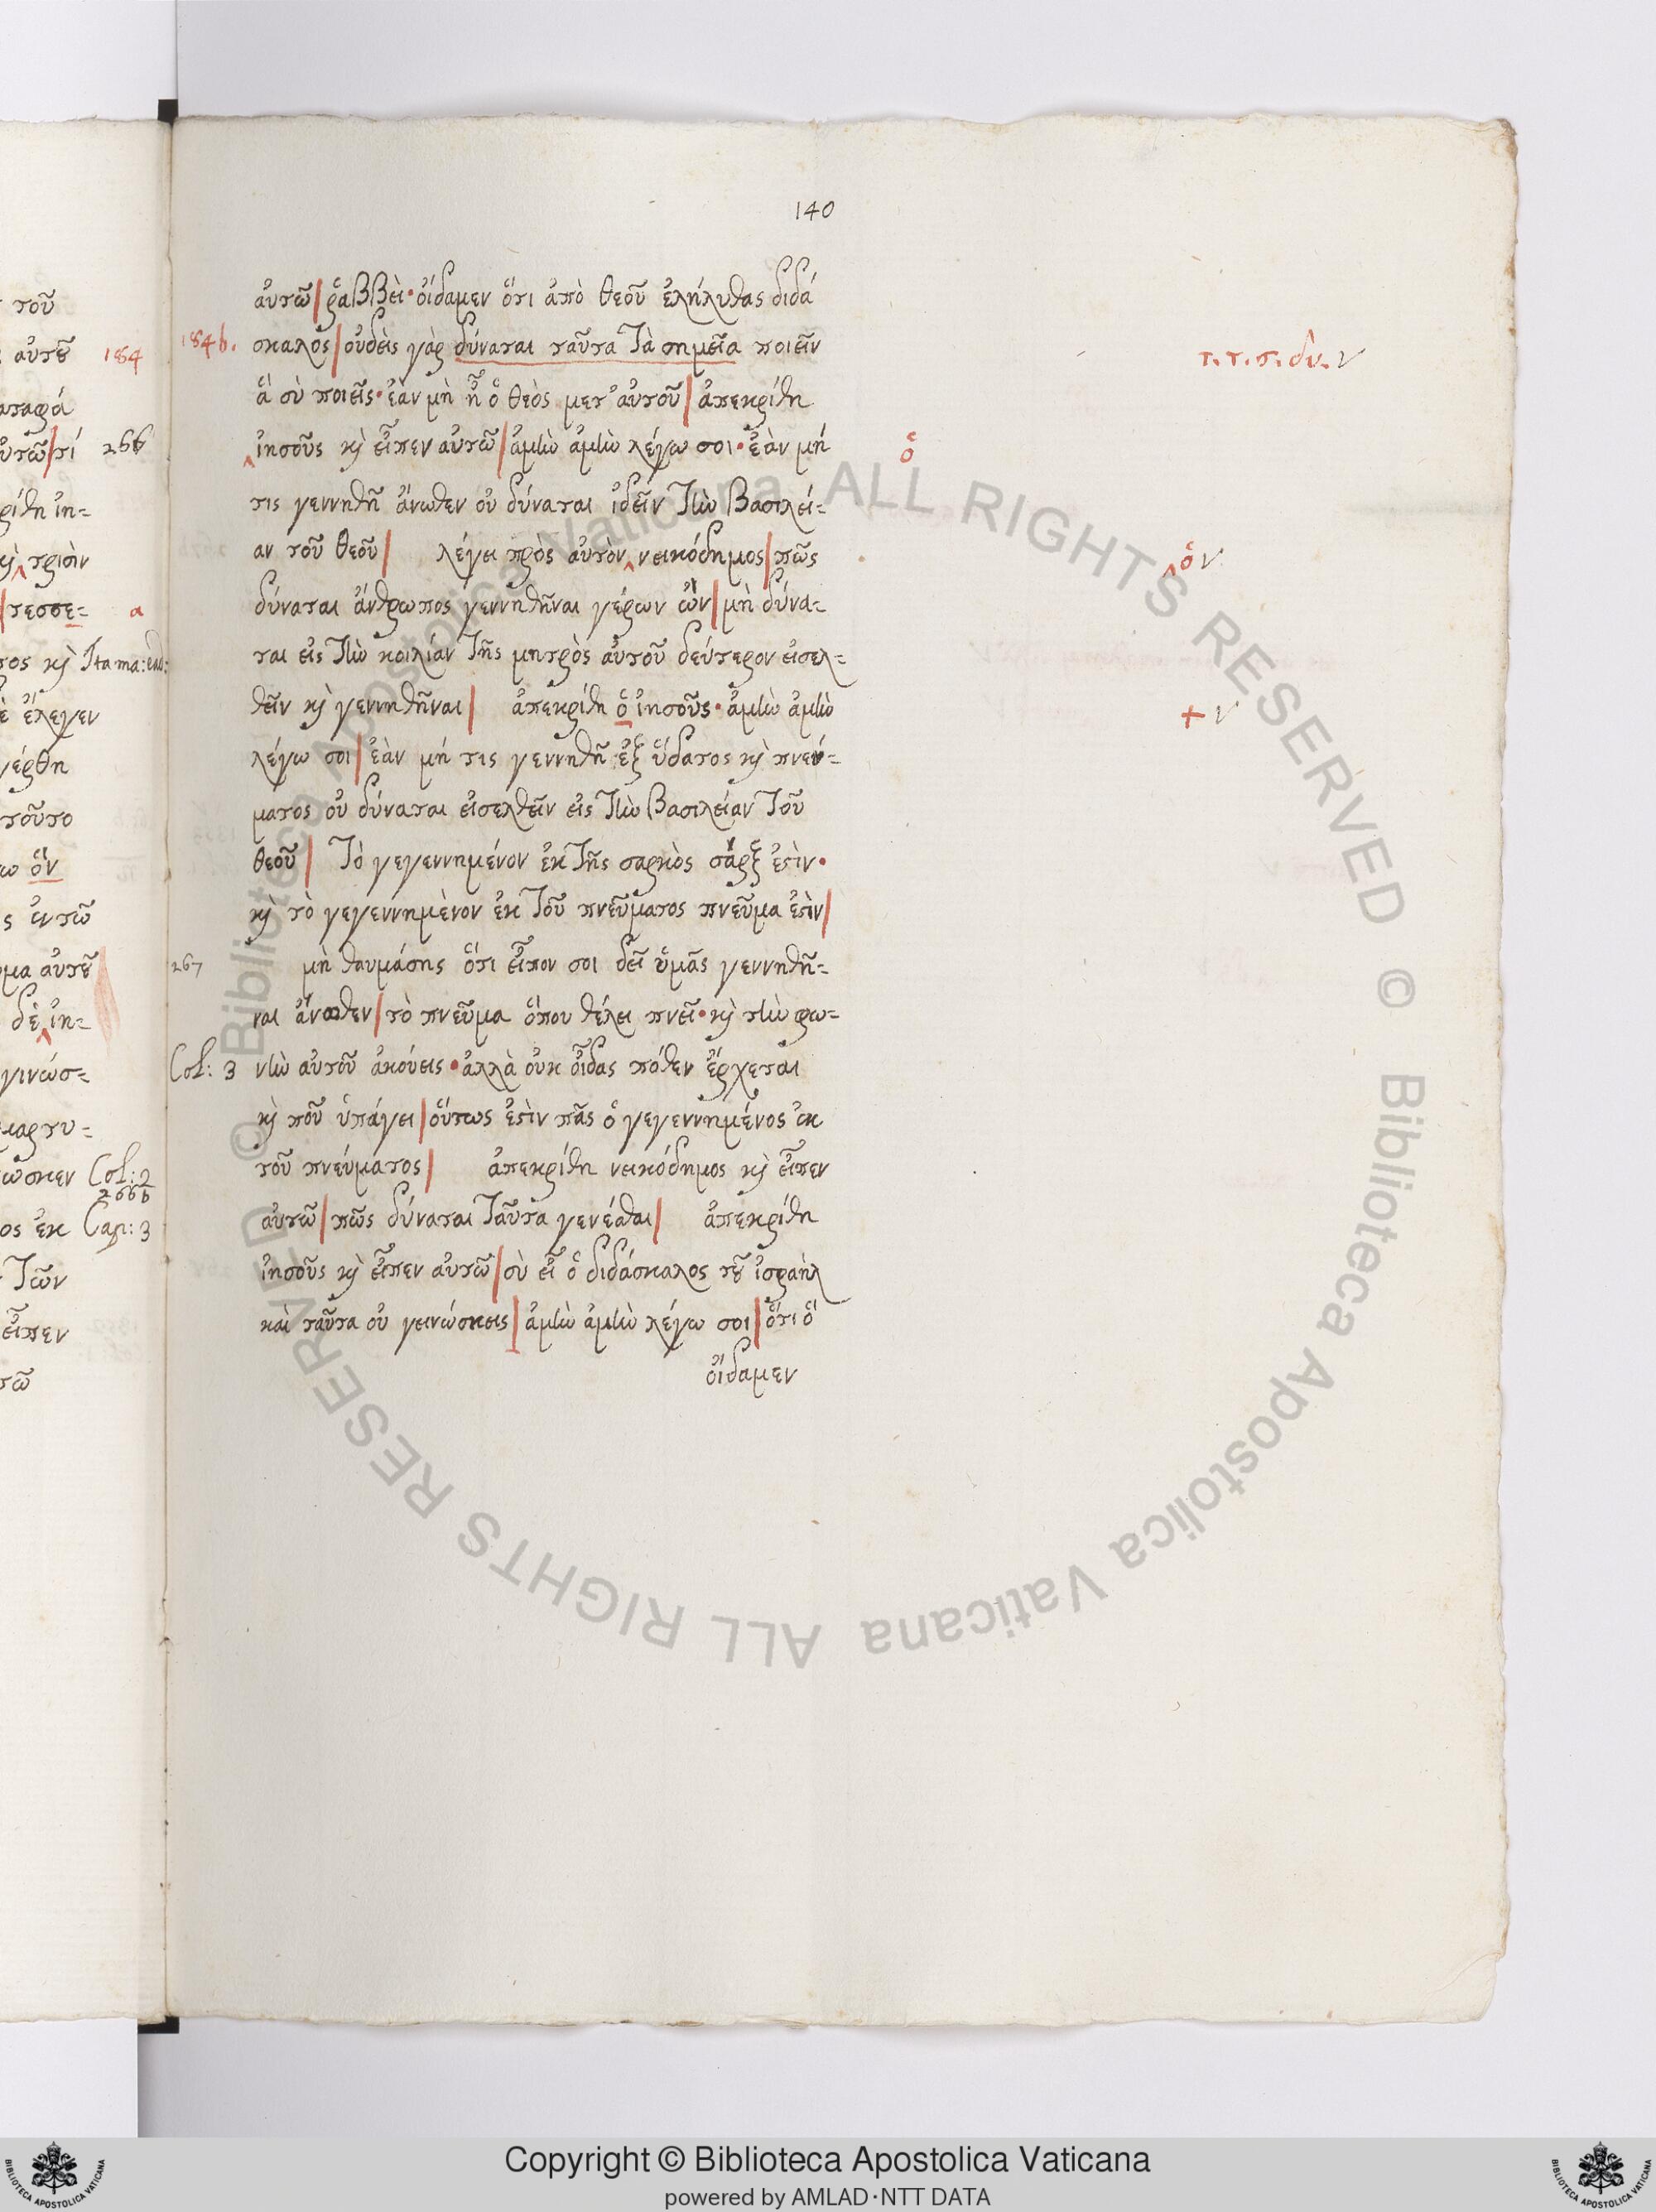 140
αὐτῶ|ῥαββεὶ·οἴδαμεν ὅτι ἀπὸ θεοῦ ἐλήλυθας διδά
184b. σκαλος|οὐδεὶς γὰρ δύναται ταῦτα τὰ σημεῖα ποιεῖν τ.τ.σ.δύ.ν
ἃ σὺ ποιεῖς·ἐὰν μὴ ἦ ὁ θεὸς μετ' αὐτοῦ|ἀπεκρίθη
^ἰησοῦς κὶ εἶπεν αὐτῶ|ἀμὴν ἀμὴν λέγω σοι·ἐὰν μή ὁ
τις γεννηθῆ ἄνωθεν οὐ δύναται ἰδεῖν τὴν βασιλεί=
αν τοῦ θεοῦ| λέγει πρὸς αὐτὸν^νεικόδημος|πῶς ^ὁ ν
δύναται ἄνθρωπος γεννηθῆναι γέρων ὢν|μὴ δύνα=
ται εἰς τὴν κοιλίαν τῆς μητρὸς αὐτοῦ δεύτερον εἰσελ=
θεῖν κὶ γεννηθῆναι| ἀπεκρίθη ὁ ἰησοῦς·ἀμὴν ἀμὴν + ν
λέγω σοι|ἐὰν μή τις γεννηθῆ ἐξ ὕδατος κὶ πνεύ=
ματος οὐ δύναται εἰσελθεῖν εἰς τὴν βασιλείαν τοῦ
θεοῦ| τὸ γεγεννημένον ἐκ τῆς σαρκὸς σάρξ ἐστὶν·
κὶ τὸ γεγεννημένον ἐκ τοῦ πνεύματος πνεῦμα ἐστὶν|
267 μὴ θαυμάσης ὅτι εἶπον σοι δεῖ ὑμᾶς γεννηθῆ=
ναι ἄνωθεν|τὸ πνεῦμα ὅπου θέλει πνεῖ·κὶ τὴν φω=
Col: 3 νὴν αὐτοῦ ἀκούεις·ἀλλὰ οὐκ οἶδας πόθεν ἔρχεται
κὶ ποῦ ὑπάγει|οὕτως ἐστὶν πᾶς ὁ γεγεννημένος ἐκ
τοῦ πνεύματος| ἀπεκρίθη νεικόδημος κὶ εἶπεν
αὐτῶ|πῶς δύναται ταῦτα γενέσθαι| ἀπεκρίθη
ἰησοῦς κὶ εἶπεν αὐτῶ|σὺ εἶ ὁ διδάσκαλος τοῦ ἰσραὴλ
καὶ ταῦτα οὐ γεινώσκεις|ἀμὴν ἀμὴν λέγω σοι|ὅτι ὃ
οἴδαμεν
τοῦ
αὐτοῦ 184
266
τεσσε= α
τος κὶ
ἔλεγεν
τοῦτο
ὃν
ἐν τῶ
αὐτοῦ
δὲ^ἰη=
γινώσ=
Col: 2
266b
ος ἐκ Cap: 3
τῶν
εἶπεν
© Biblioteca Apostolica Vaticana ALL RIGHTS RESERVED © Biblioteca Apostolica Vaticana ALL RIGHTS RESERVED
Copyright © Biblioteca Apostolica Vaticana
powered by AMLAD·NTT DATA
BIBLIOTECA APOSTOLICA VATICANA
BIBLIOTECA APOSTOLICA VATICANA